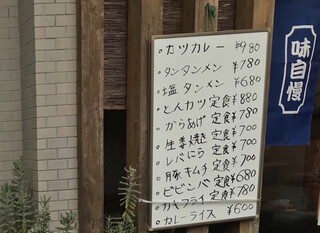 ・カツカレー ¥980
・タンタンメン ¥780
・塩タンメン ¥680
・とんカツ定食 ¥880
・からあげ定食 ¥780
・生姜焼き定食 ¥700
・レバにら定食 ¥700
・豚キムチ定食 ¥700
・ビビンバ定食 ¥680
・カキフライ定食 ¥780
・カレーライス ¥600
味自慢